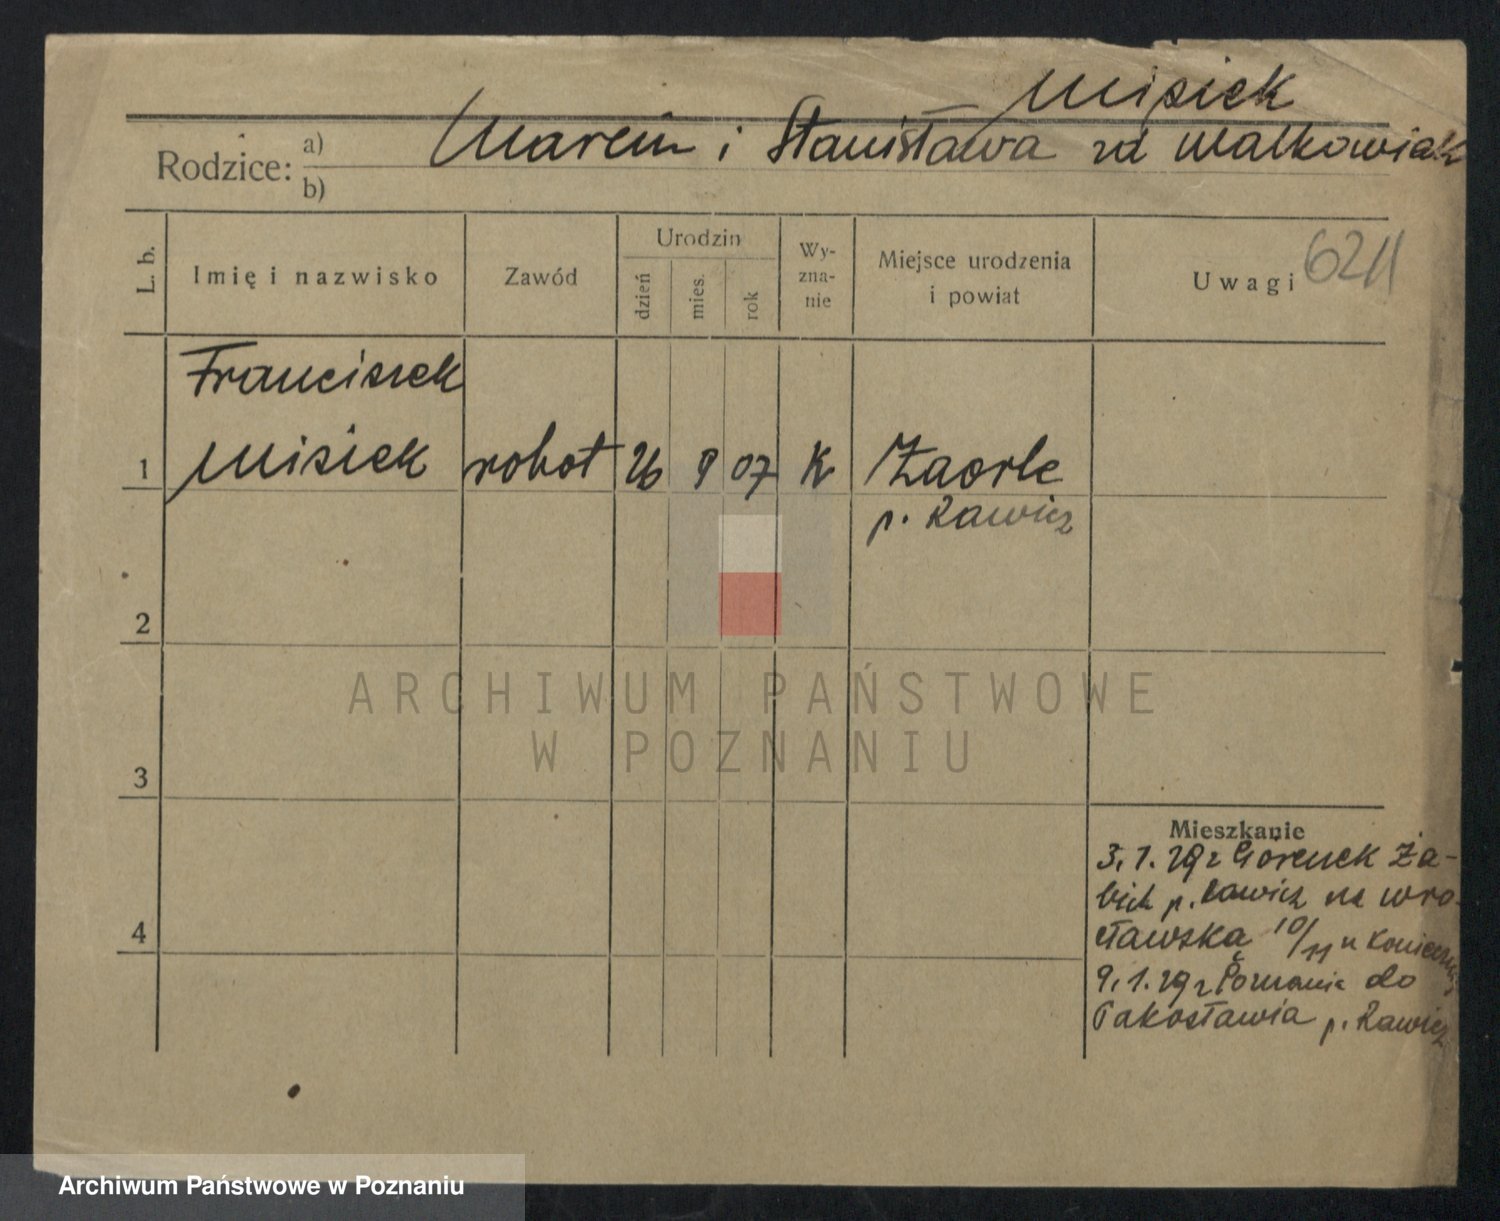 Misiek
Rodzice: a) Marcin i Stanisława zd Walkowiak
b)
L. b.
Imię i nazwisko
Zawód
Urodzin
dzień
mies.
rok
Wy-
zna-
nie
Miejsce urodzenia
i powiat
Uwagi
Franciszek
1 Misiek robot 26 9 07 K Zaorle
p. Rawicz
2
3
4
Mieszkanie
3.1.29 z Ża-
p. Rawicz na Wro-
cławska 10/11 u
9.1.29 z Poznania do
Pakosławia p. Rawicz
ARCHIWUM PAŃSTWOWE
W POZNANIU
Archiwum Państwowe w Poznaniu